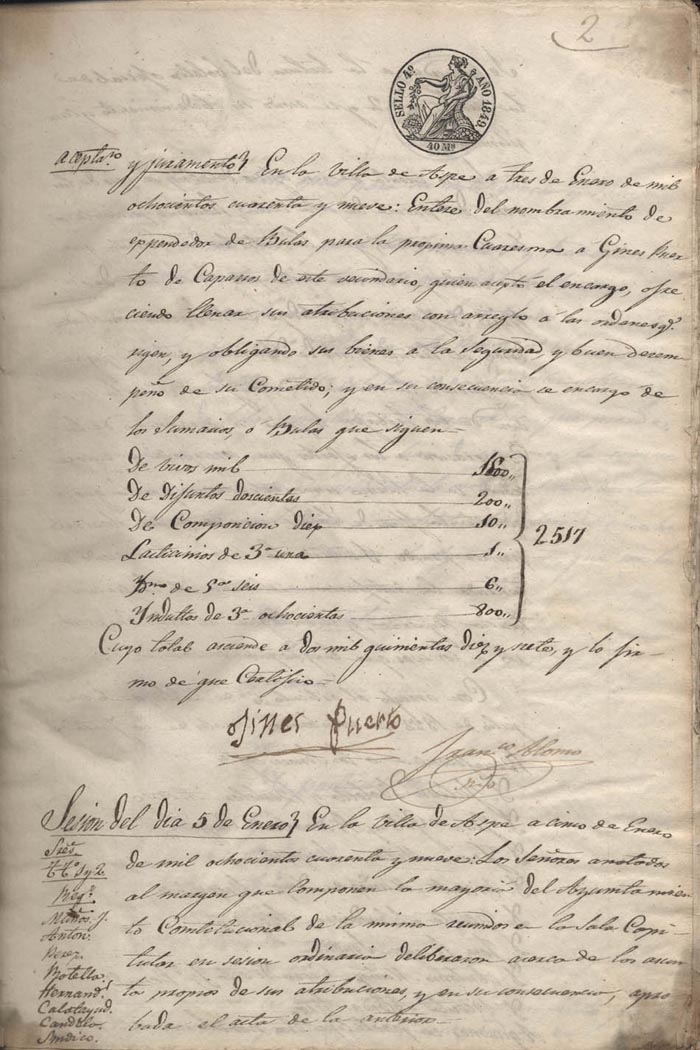 2
SELLO 4º AÑO 1849
40 Ms
aceptaºn y juramento} En la Villa de Aspe a tres de Enero de mil
ochocientos cuarenta y nueve: Entere del nombramiento de
ependedor de Bulas para la proxima Cuaresma a Gines Puer
to de Caparros de este vecindario, quien aceptó el encargo, ofre
ciendo llenar sus atribuciones con arreglo á las ordenes q.
rigen, y obligando sus bienes a la Seguridad, y buen desem
peño de su Cometido; y en su consecuencia se encargo de
los Sumarios, o Bulas que siguen—
De vivos mil 1500,,
De Difuntos doscientas 200,,
De Composicion diez 10,,
Lacticinios de 3ª una 1,,
Ydmo de 5ª seis 6,,
Yndultos de 3ª ochocientas 800,,
2517
Cuyo total asciende a dos mil quinientas diez y siete, y lo fir
mo de que Certifico—
Gines Puerto
Franco Alonso
Sesion del dia 5 de Enero} En la Villa de Aspe a cinco de Enero
de mil ochocientos cuarenta y nueve: Los Señores anotados
al margen que componen la mayoria del Ayuntamien
to Constitucional de la misma reunidos en la Sala Capi
tular en sesion ordinaria deliberaron acerca de los asun
tos propios de sus atribuciones, y en su consecuencia, apro
bada el acta de la anterior—
Sres.
Tt.º 1 y 2
Reg.s
Anton.
Perez
Botella
Hernand.s
Calatayud.
Candela.
Sindico.